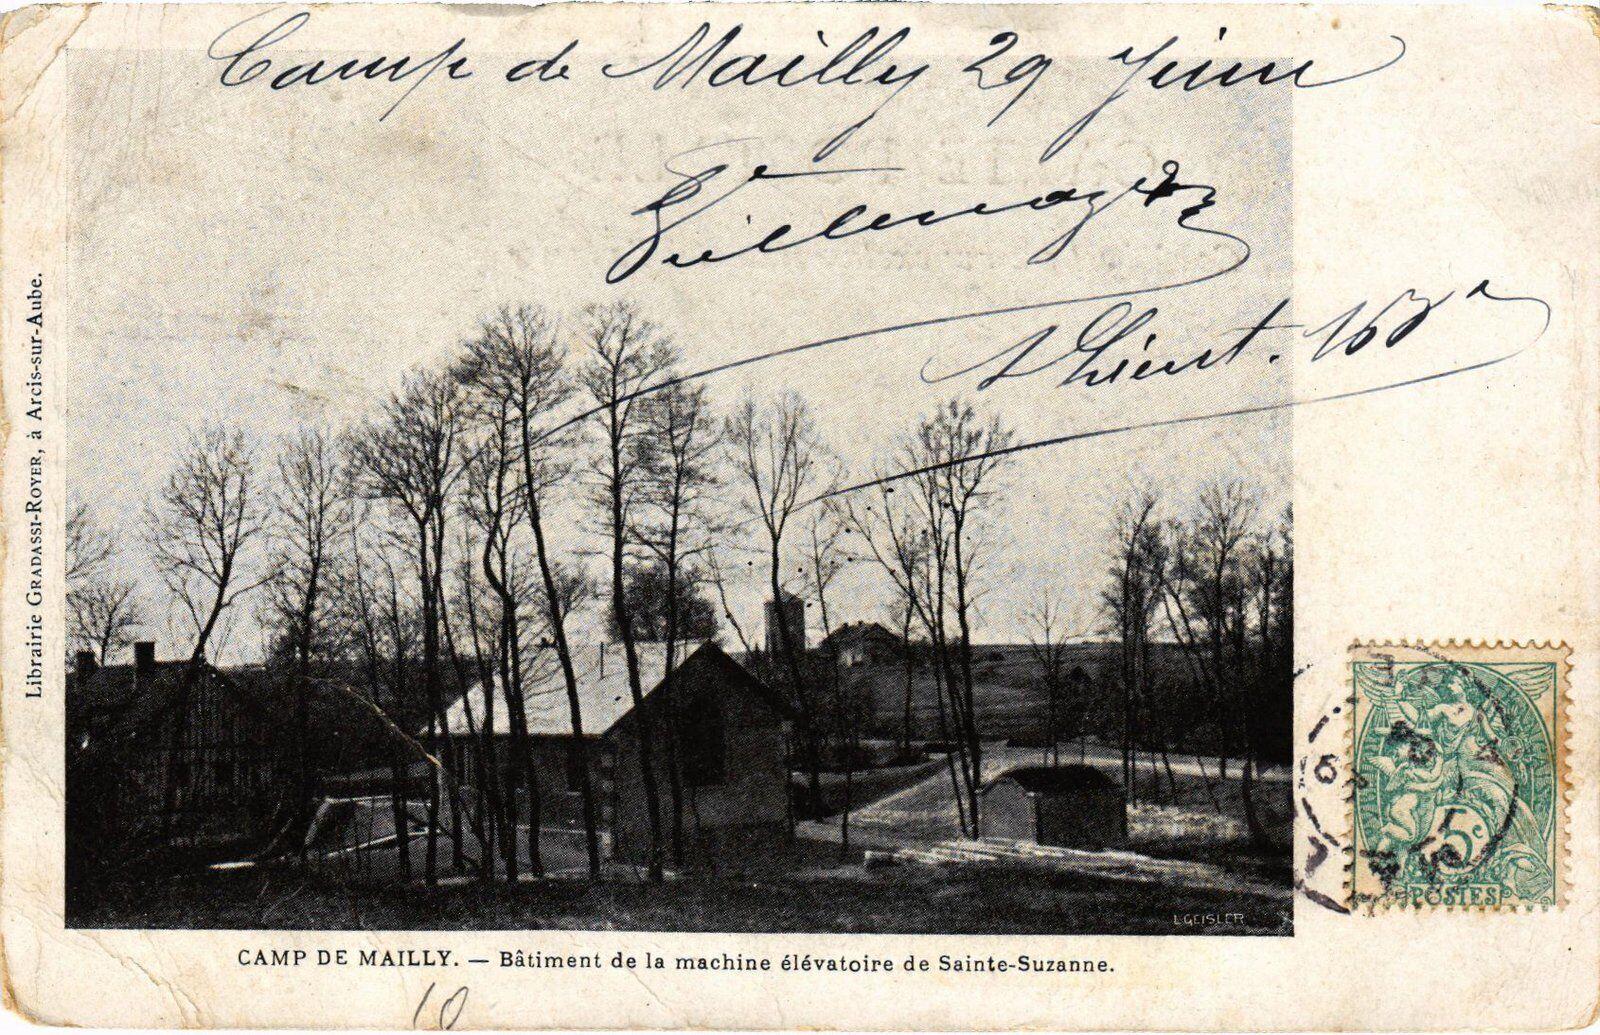 Camp de Mailly 29 Juin
Lieut.
Librairie GRADASSI-ROYER, à Arcis-sur-Aube.
L.GEISLER
5c
POSTES
CAMP DE MAILLY. — Bâtiment de la machine élévatoire de Sainte-Suzanne.
10